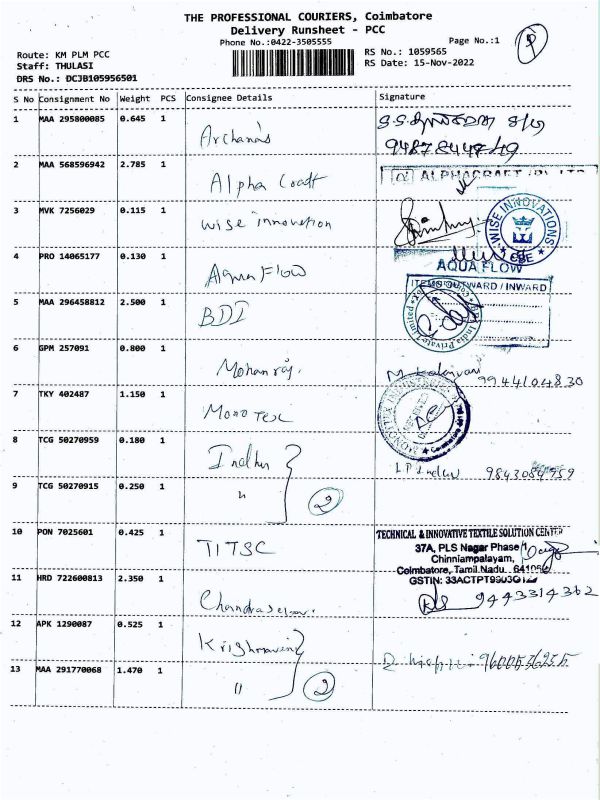 THE PROFESSIONAL COURIERS, Coimbatore
Delivery Runsheet - PCC
Phone No.:0422-3505555
Page No.:1
Route: KM PLM PCC
RS No.: 1059565
Staff: THULASI
RS Date: 15-Nov-2022
DRS No.: DCJB105956501
S No Consignment No Weight PCS Consignee Details Signature
1 MAA 295800085 0.645 1 Archana's
9487844749
2 MAA 568596942 2.785 1 Alpha ALPHACRAFT
3 MVK 7256029 0.115 1 Wise innovation WISE INNOVATIONS CBE
4 PRO 14065177 0.130 1 Aqua Flow AQUA FLOW
ITEMS OUTWARD / INWARD
5 MAA 296458812 2.500 1 BDI India Private Limited
6 GPM 257091 0.800 1 Mohanraj. 9944104830
7 TKY 402487 1.150 1 Mono Tex
8 TCG 50270959 0.180 1 Indhu 9843084959
9 TCG 50270915 0.250 1 " 2
10 PON 7025601 0.425 1 TITSC TECHNICAL & INNOVATIVE TEXTILE SOLUTION CENTER
37A, PLS Nagar Phase
Chinniampalayam,
Coimbatore, Tamil Nadu
11 HRD 722600813 2.350 1 GSTIN:
9443314362
12 APK 1290087 0.525 1
13 MAA 291770068 1.470 1 " 2